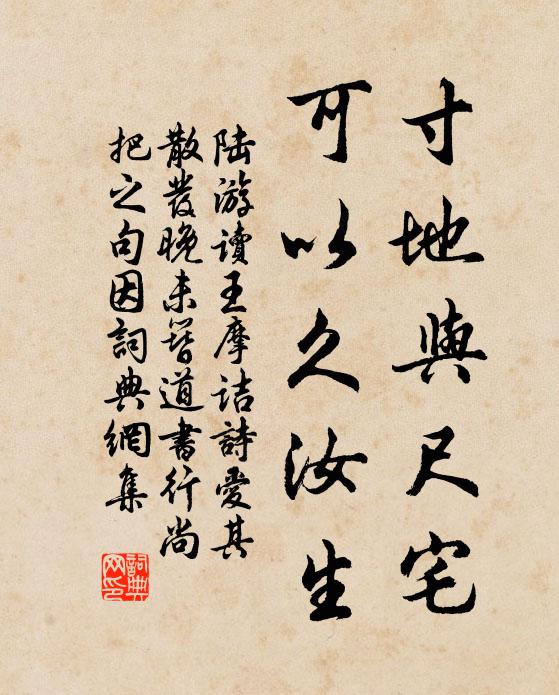 寸地與尺宅
可以久汝生
陸游讀王摩詰詩愛其
散發晚未簪道書行尚
把之句因詞典網集
詞典網印